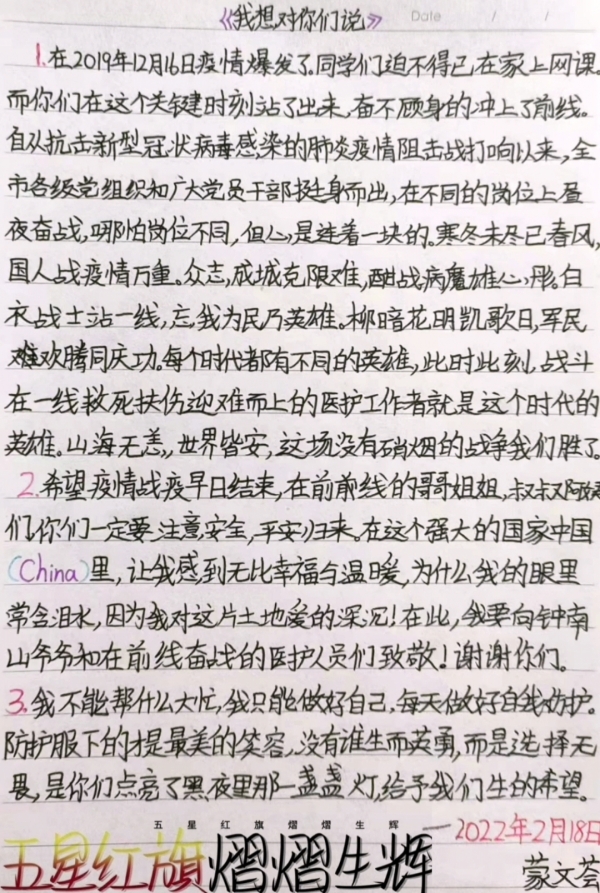 《我想对你们说》 Date / /
1.在2019年12月16日疫情爆发了.同学们迫不得已在家上网课.
而你们在这个关键时刻站了出来,奋不顾身的冲上了前线。
自从抗击新型冠状病毒感染的肺炎疫情阻击战打响以来,全
市各级党组织和广大党员干部挺身而出,在不同的岗位上昼
夜奋战,哪怕岗位不同,但心是连着一块的。寒冬未尽已春风,
国人战疫情万重。众志成城克限难,酣战病魔雄心彤。白
衣战士站一线,忘我为民乃英雄。柳暗花明凯歌日,军民
难欢腾同庆功。每个时代都有不同的英雄,此时此刻,战斗
在一线救死扶伤迎难而上的医护工作者就是这个时代的
英雄。山海无恙,世界皆安,这场没有硝烟的战争我们胜了。
2.希望疫情战疫早日结束,在前前线的哥哥姐姐,叔叔阿姨
们,你们一定要注意安全,平安归来。在这个强大的国家中国
(China)里,让我感到无比幸福与温暖,为什么我的眼里
常含泪水,因为我对这片土地爱的深沉!在此,我要向钟南
山爷爷和在前线奋战的医护人员们致敬!谢谢你们。
3.我不能帮什么大忙,我只能做好自己,每天做好自我防护。
防护服下的才是最美的笑容,没有谁生而英勇,而是选择无
畏,是你们点亮了黑夜里那一盏盏灯,给予我们生的希望。
五星红旗熠熠生辉
——2022年2月18日
五星红旗熠熠生辉
蒙文荟